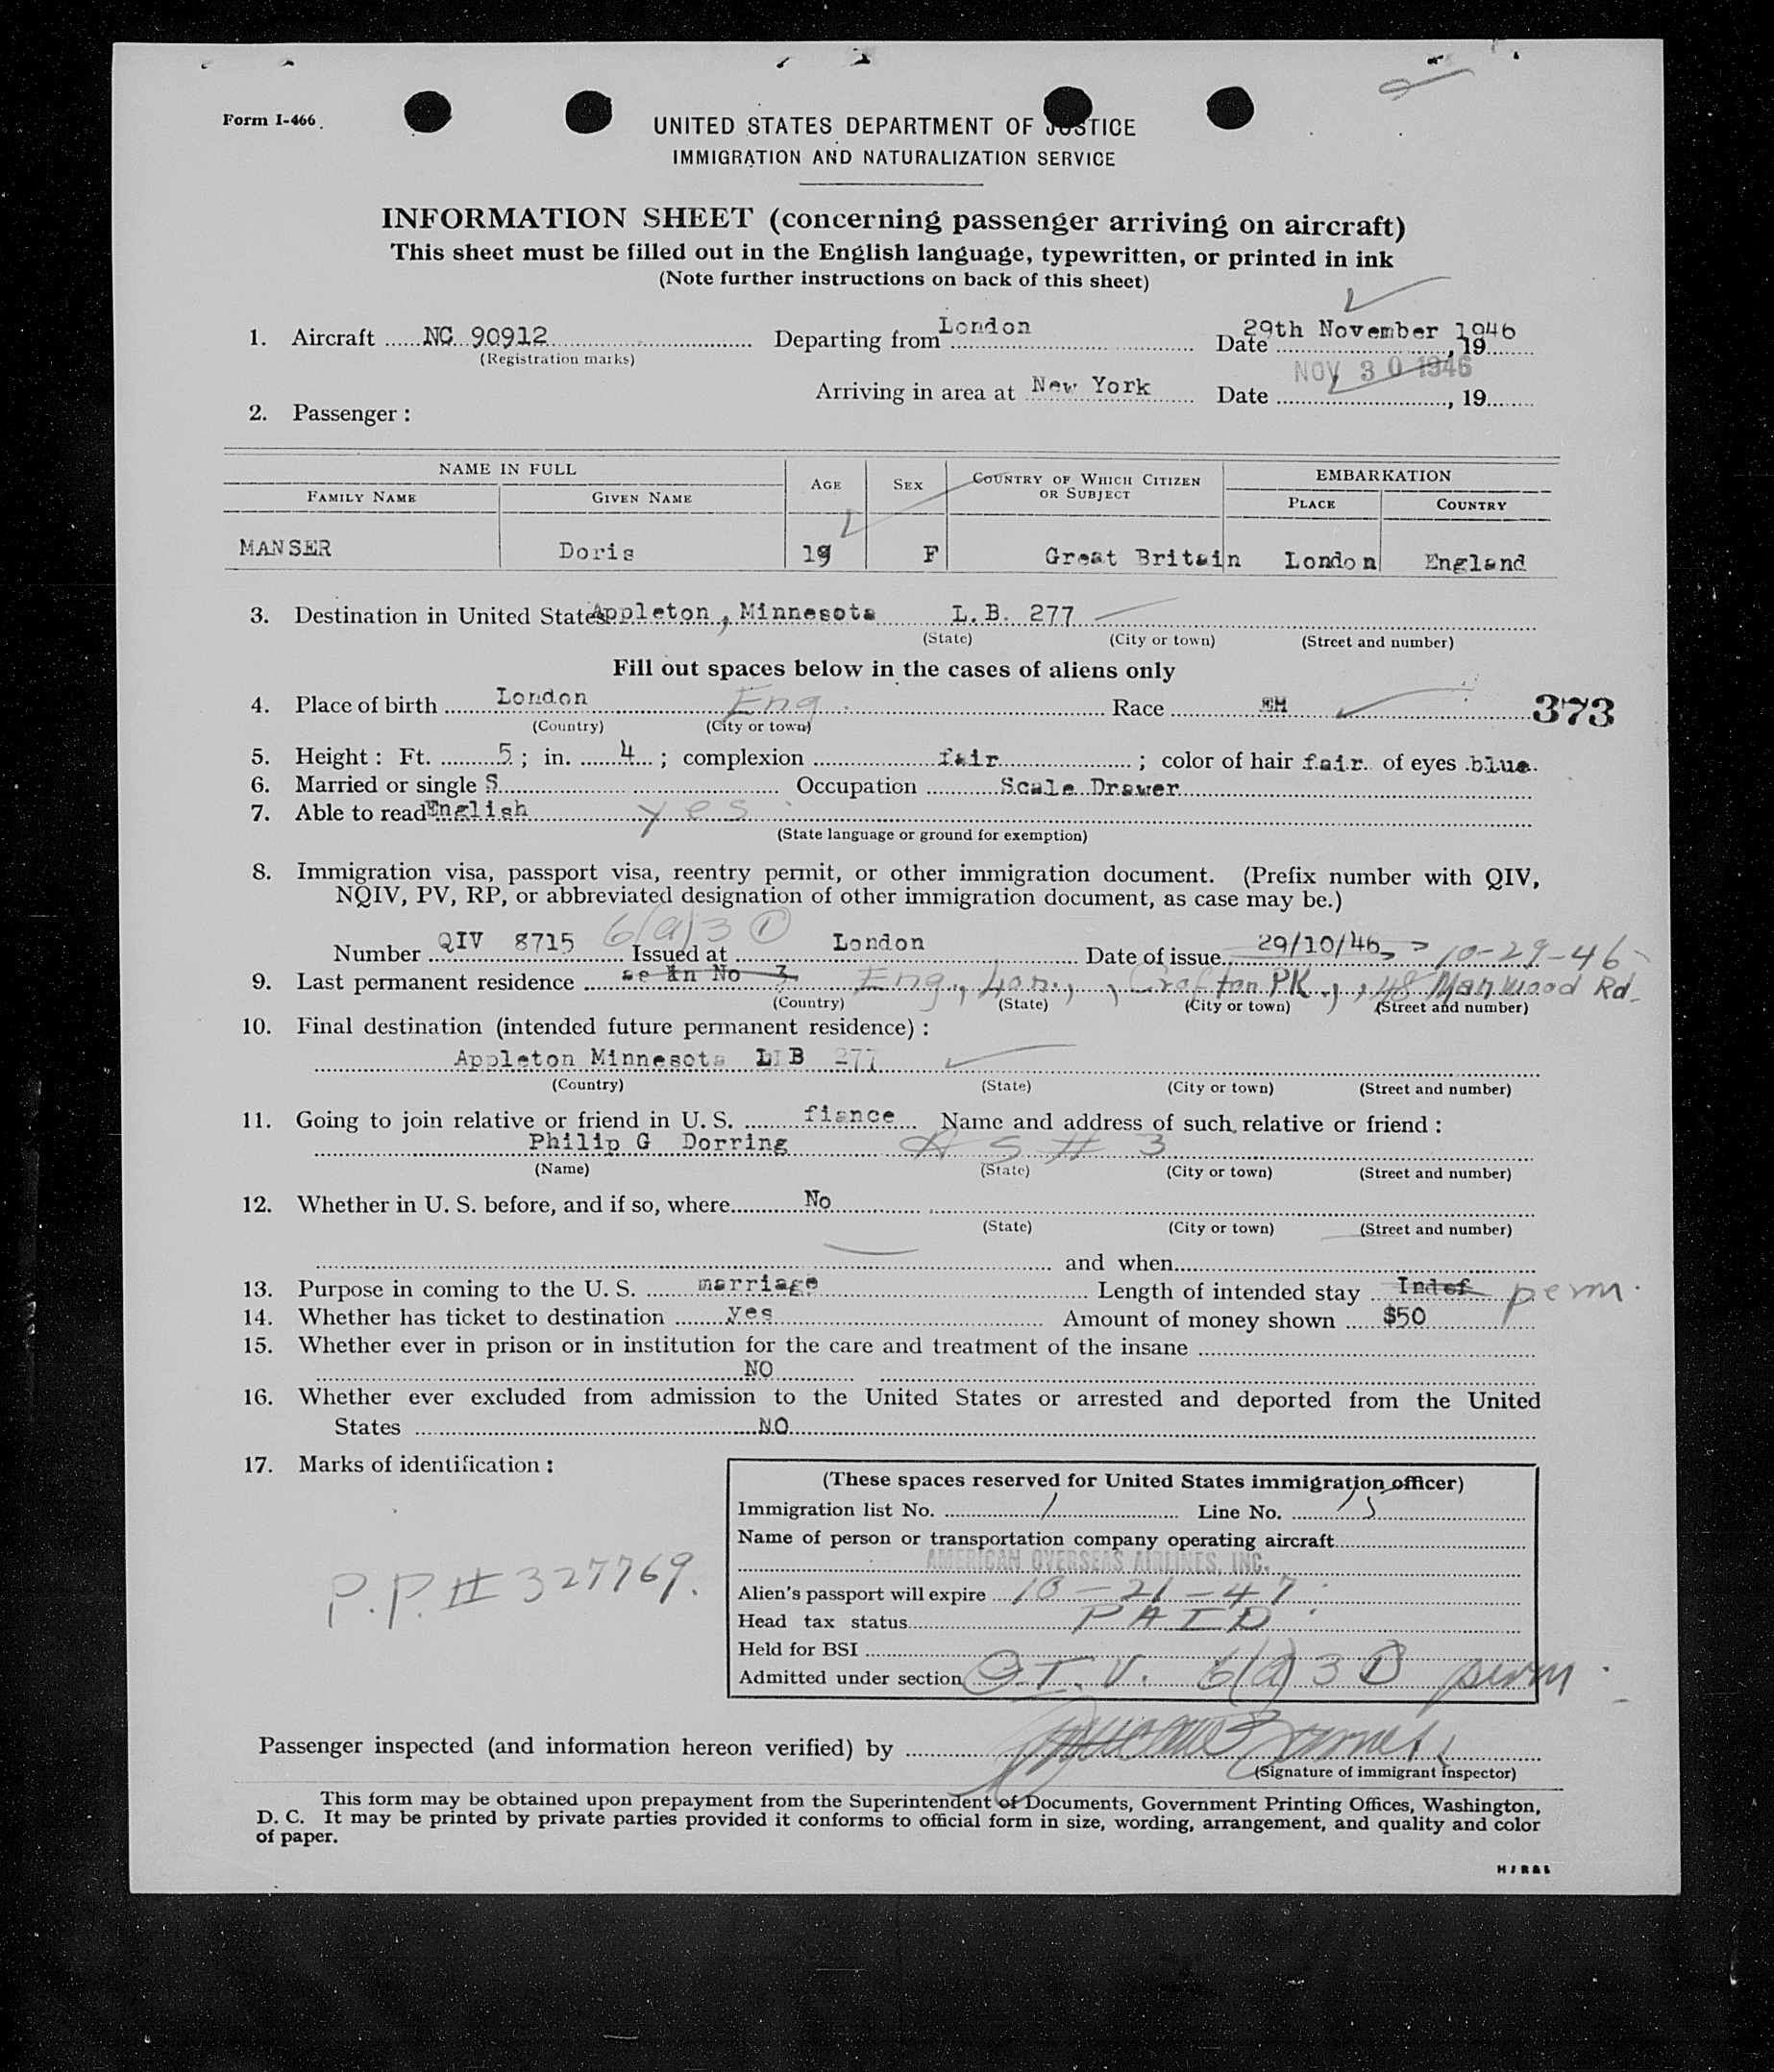 Form I-466
UNITED STATES DEPARTMENT OF JUSTICE
IMMIGRATION AND NATURALIZATION SERVICE
INFORMATION SHEET (concerning passenger arriving on aircraft)
This sheet must be filled out in the English language, typewritten, or printed in ink
(Note further instructions on back of this sheet)
1. Aircraft NC 90912 Departing from London Date 29th November 1946, 19
(Registration marks)
NOV 30 1946
Arriving in area at New York Date , 19
2. Passenger :
NAME IN FULL AGE SEX COUNTRY OF WHICH CITIZEN OR SUBJECT EMBARKATION
FAMILY NAME GIVEN NAME PLACE COUNTRY
MANSER Doris 19 F Great Britain London England
3. Destination in United States Appleton, Minnesota L.B. 277
(State) (City or town) (Street and number)
Fill out spaces below in the cases of aliens only
4. Place of birth London Eng. Race 373
(Country) (City or town)
5. Height : Ft. 5 ; in. 4 ; complexion fair ; color of hair fair of eyes blue
6. Married or single S Occupation Scale Drawer
7. Able to read English yes
(State language or ground for exemption)
8. Immigration visa, passport visa, reentry permit, or other immigration document. (Prefix number with QIV,
NQIV, PV, RP, or abbreviated designation of other immigration document, as case may be.)
6(a)3 ①
Number QIV 8715 Issued at London Date of issue 29/10/46 10-29-46
9. Last permanent residence as in No 3 Eng., Lon., Crofton PK., 48 Manwood Rd.
(Country) (State) (City or town) (Street and number)
10. Final destination (intended future permanent residence) :
Appleton Minnesota L B 277
(Country) (State) (City or town) (Street and number)
11. Going to join relative or friend in U. S. fiance Name and address of such relative or friend :
Philip G Dorring A S # 3
(Name) (State) (City or town) (Street and number)
12. Whether in U. S. before, and if so, where No
(State) (City or town) (Street and number)
and when
13. Purpose in coming to the U. S. marriage Length of intended stay Indef perm.
14. Whether has ticket to destination yes Amount of money shown $50
15. Whether ever in prison or in institution for the care and treatment of the insane
NO
16. Whether ever excluded from admission to the United States or arrested and deported from the United
States NO
17. Marks of identification :
P.P. # 327769.
(These spaces reserved for United States immigration officer)
Immigration list No. 1 Line No.
Name of person or transportation company operating aircraft
AMERICAN OVERSEAS AIRLINES, INC.
Alien's passport will expire 10-21-47
Head tax status PAID
Held for BSI
Admitted under section Q.I.V. 6(a)3 ① perm.
Passenger inspected (and information hereon verified) by
(Signature of immigrant inspector)
This form may be obtained upon prepayment from the Superintendent of Documents, Government Printing Offices, Washington,
D. C. It may be printed by private parties provided it conforms to official form in size, wording, arrangement, and quality and color
of paper.